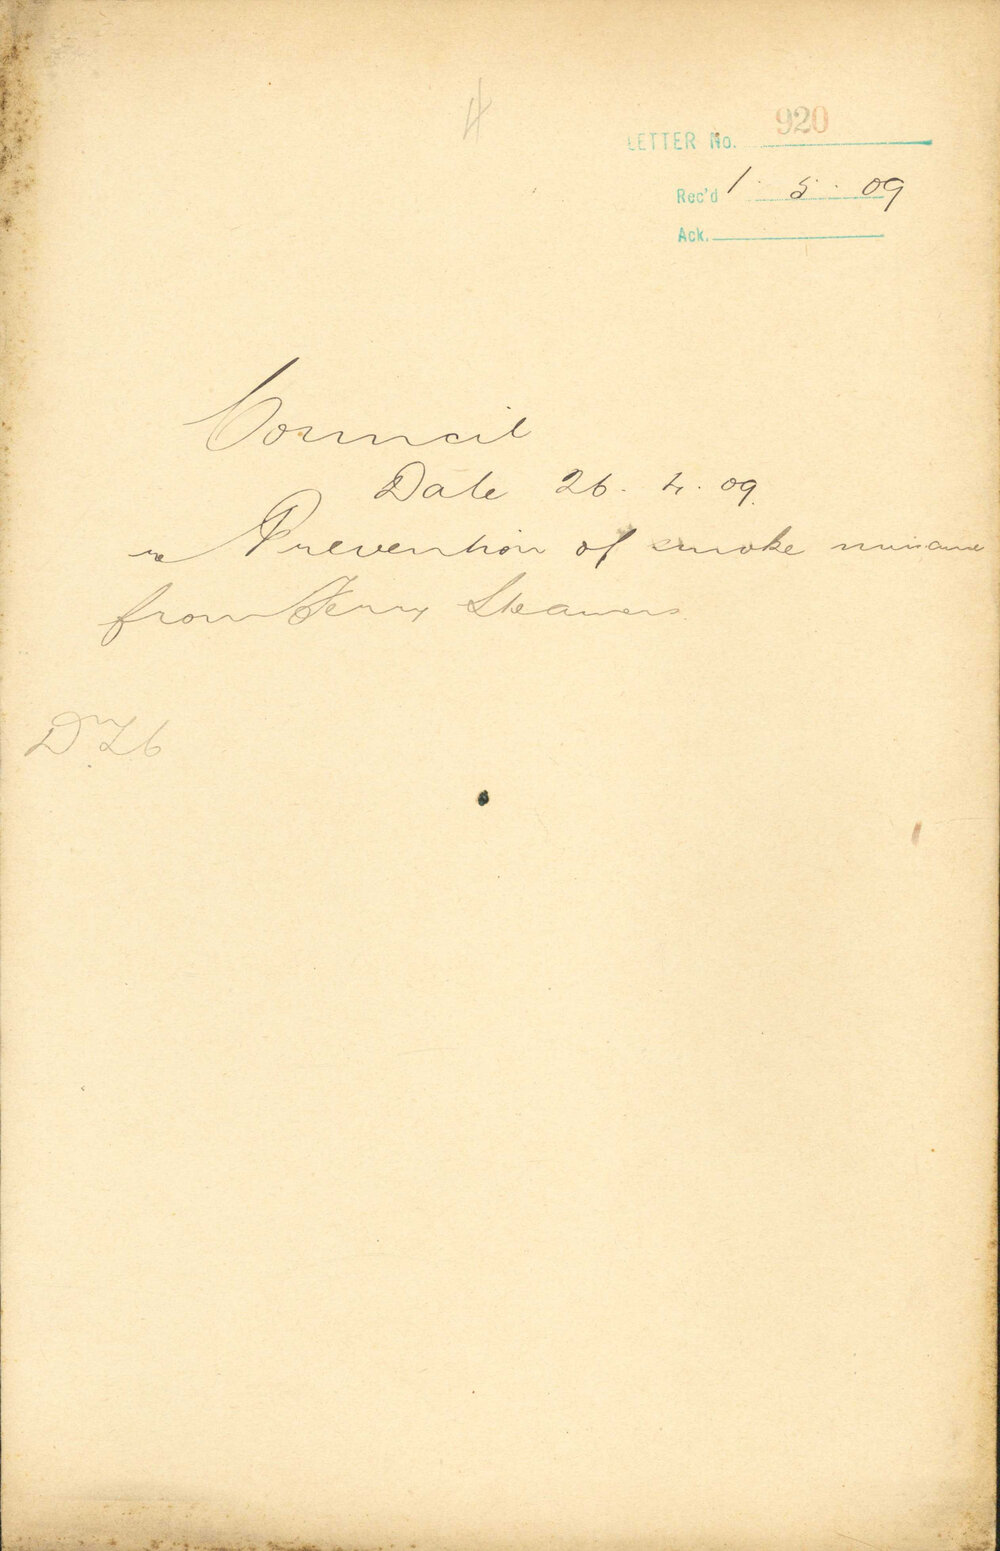 LETTER No. 920
Rec'd 1. 5. 09
Ack.
Council
Date 26. 4. 09.
re Prevention of smoke nuisance
from Ferry Steamers